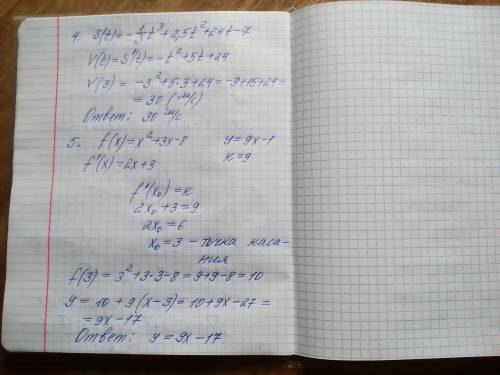 4. S(t)=-1/3t³+2,5t²+24t-7
V(t)=S'(t)=-t²+5t+24
V(3) = -3²+5·3+24=-9+15+24=
= 30 (м/с)
Ответ: 30 м/с
5. f(x)=x²+3x-8 y=9x-1
f'(x)=2x+3 к=9
f'(x₀)=к
2x₀+3=9
2x₀=6
x₀=3 - точка каса-
ния
f(3)=3²+3·3-8=9+9-8=10
y=10+9(x-3)=10+9x-27=
=9x-17
Ответ: y=9x-17.